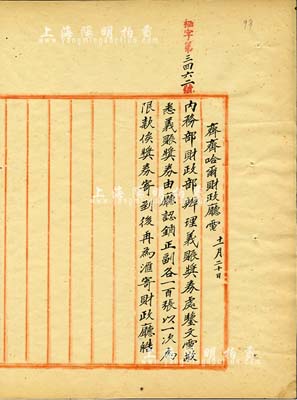 上海陽明拍賣
99
栖字第三四六二號
齊齊哈爾財政廳電 十一月二十日
內務部財政部辦理義賑獎券處鑒文電敬
悉義賑獎券由廳認銷正副各一百張以一次為
限款俟獎券寄到後再為滙寄財政廳